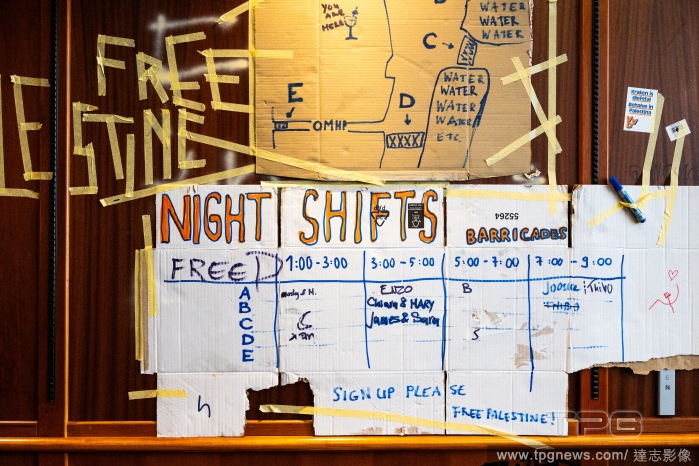 FREE
STINE
YOU
ARE
HERE
WATER
WATER
WATER
C
WATER
WATER
WATER
WATER
ETC.
E
D
OMHP
XXXX
Kraken is
diefstal
Behalve in
Palestina
NIGHT SHIFTS
55264
BARRICADES
FREE
1:00-3:00 3:00-5:00 5:00-7:00 7:00-9:00
A ENZO B Joosje
B Chiara & MARY
C James & Sara
D
E
SIGN UP PLEASE
FREE PALESTINE!
TPG
www.tpgnews.com/ 達志影像